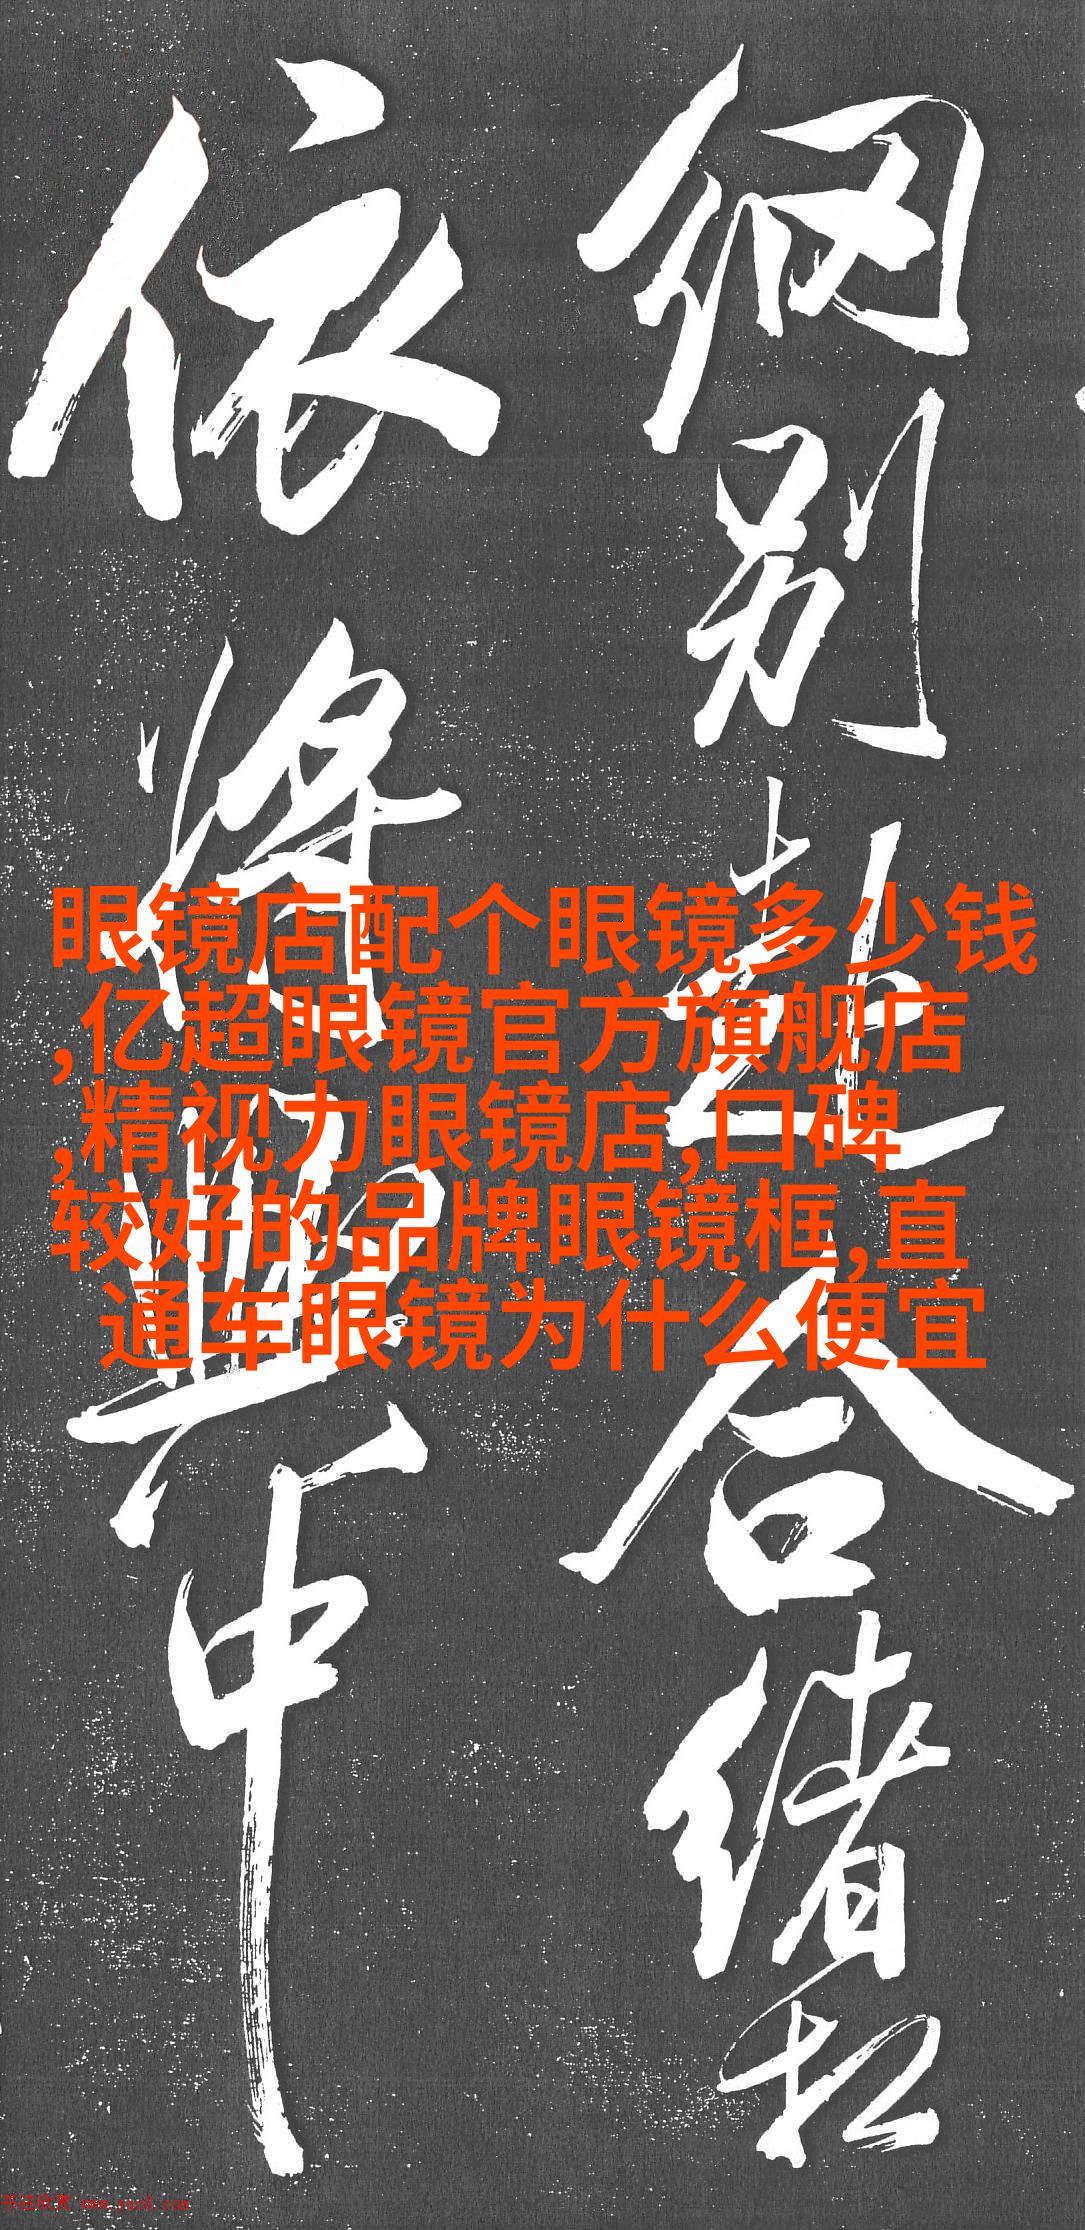 细别赴合绪松
依将与中
眼镜店配个眼镜多少钱
,亿超眼镜官方旗舰店
,精视力眼镜店,口碑
较好的品牌眼镜框,直
通车眼镜为什么便宜
书法欣赏 www.yac8.com